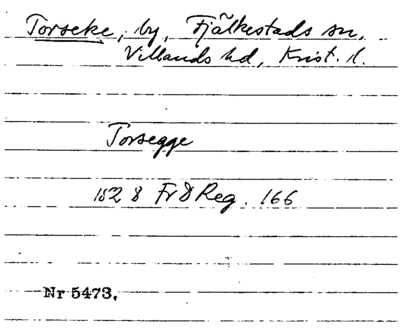 Torseke, by, Fjälkestads sn,
Villands hd, Krist. l.
Torsegge
1528 Fr I Reg. 166
Nr 5473.